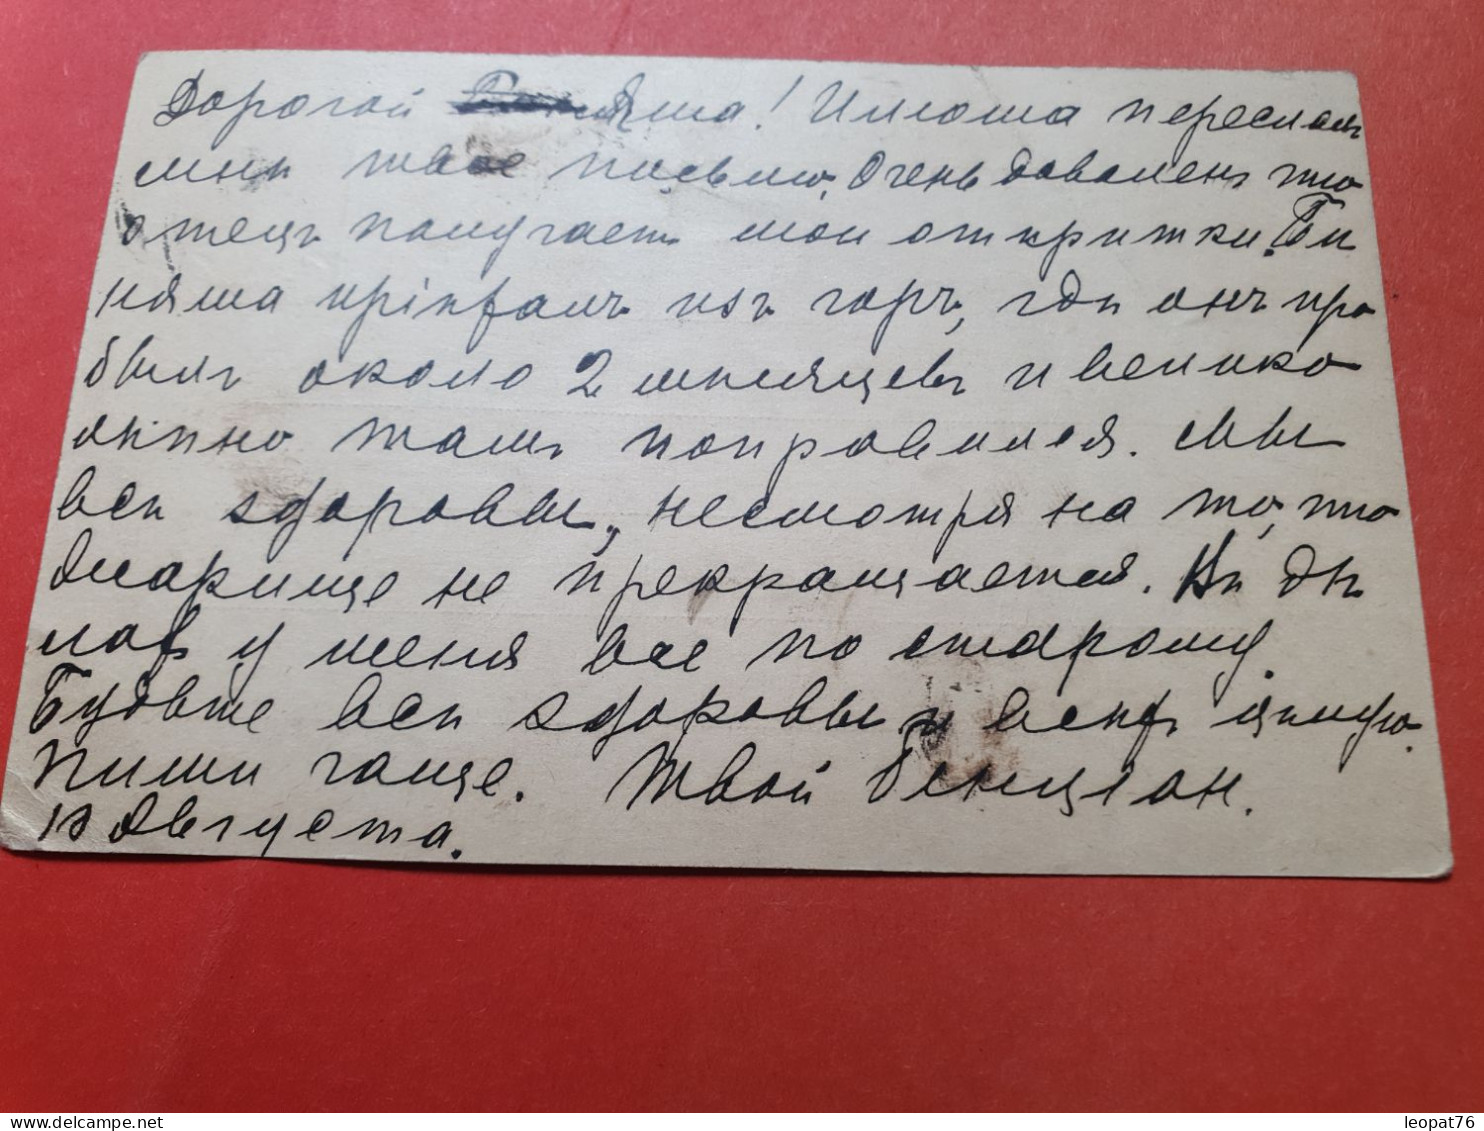 Дорогой Яша! Илюша переслалъ
мнѣ твое письмо. Очень доволенъ что
отецъ получаетъ мои открытки. Бе
няша пріѣхалъ изъ горъ, гдѣ онъ про
былъ около 2 мѣсяцевъ и велико
лѣпно тамъ поправился. Мы
всѣ здоровы, несмотря на то, что
жарище не прекращается. Въ дѣ
лахъ у меня все по старому.
Будьте всѣ здоровы и всѣхъ цѣлую.
Пиши чаще. Твой Бенціон.
10 Августа.
leopat76